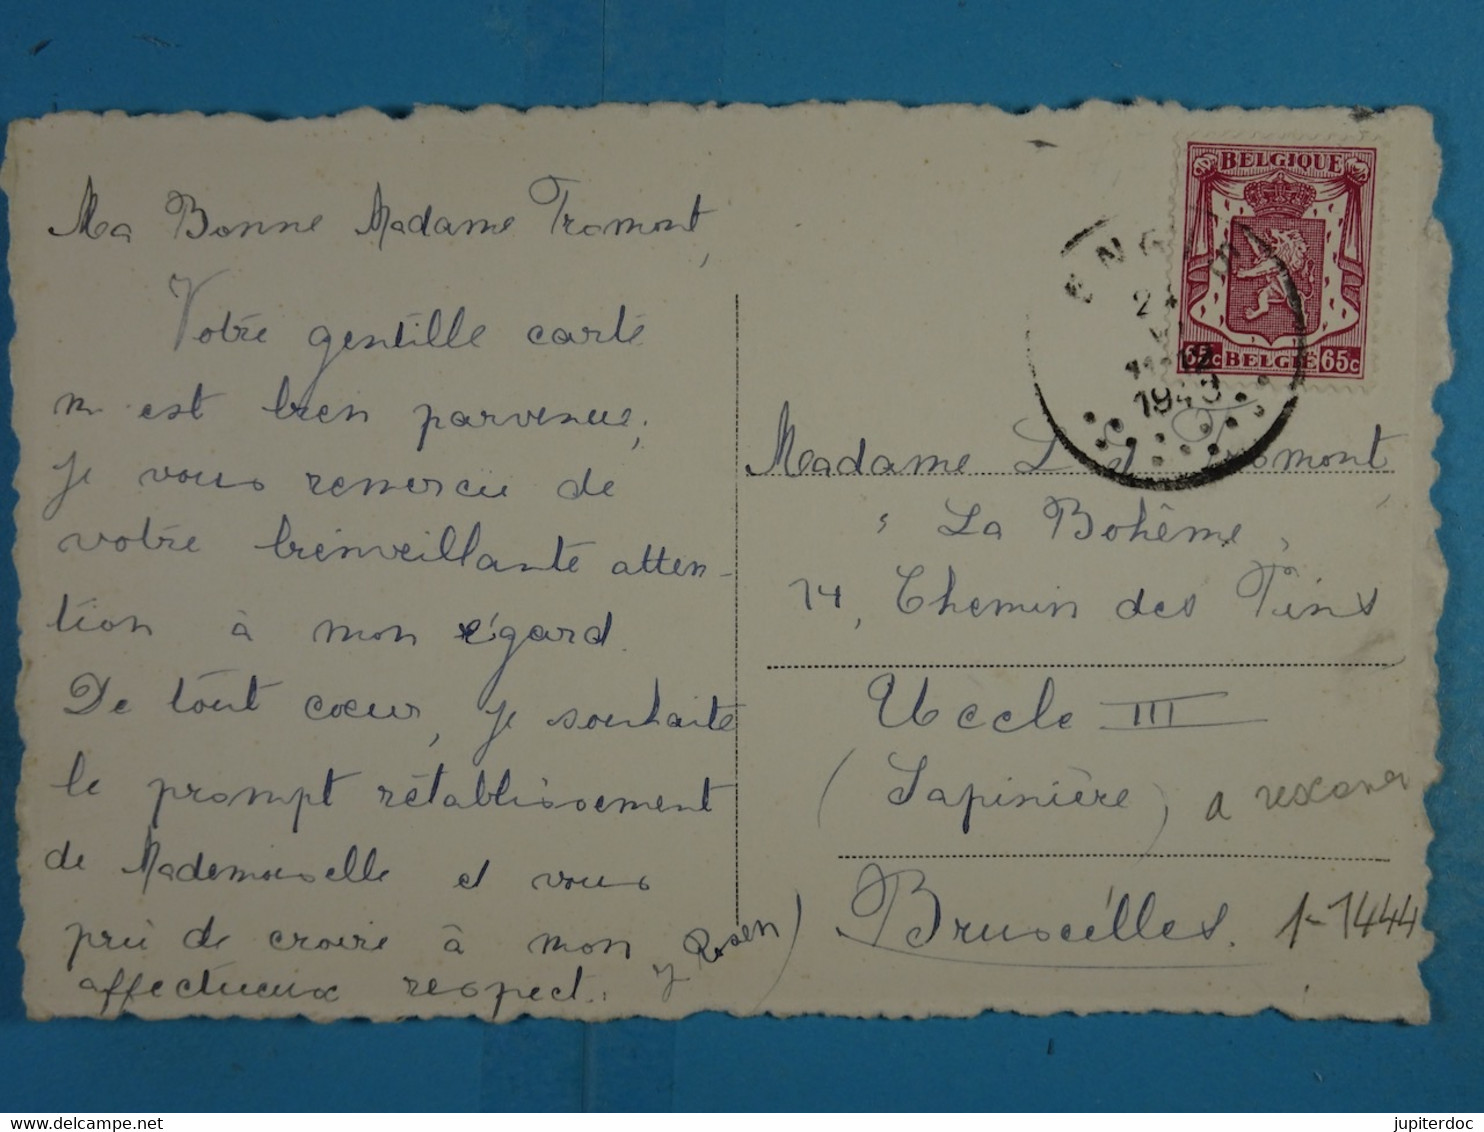 Ma Bonne Madame Tromont,
Votre gentille carte
m'est bien parvenue,
je vous remercie de
votre bienveillante atten-
tion à mon égard.
De tout coeur, je souhaite
le prompt rétablissement
de Mademoiselle et vous
prie de croire à mon
affectueux respect. J Rosen
BELGIQUE
65c BELGIË 65c
1945
Madame L Tromont
"La Bohême"
14, Chemin des Pins
Uccle III
(Sapinière) a
Bruxelles. 1-1444
www.delcampe.net
jupiterdoc